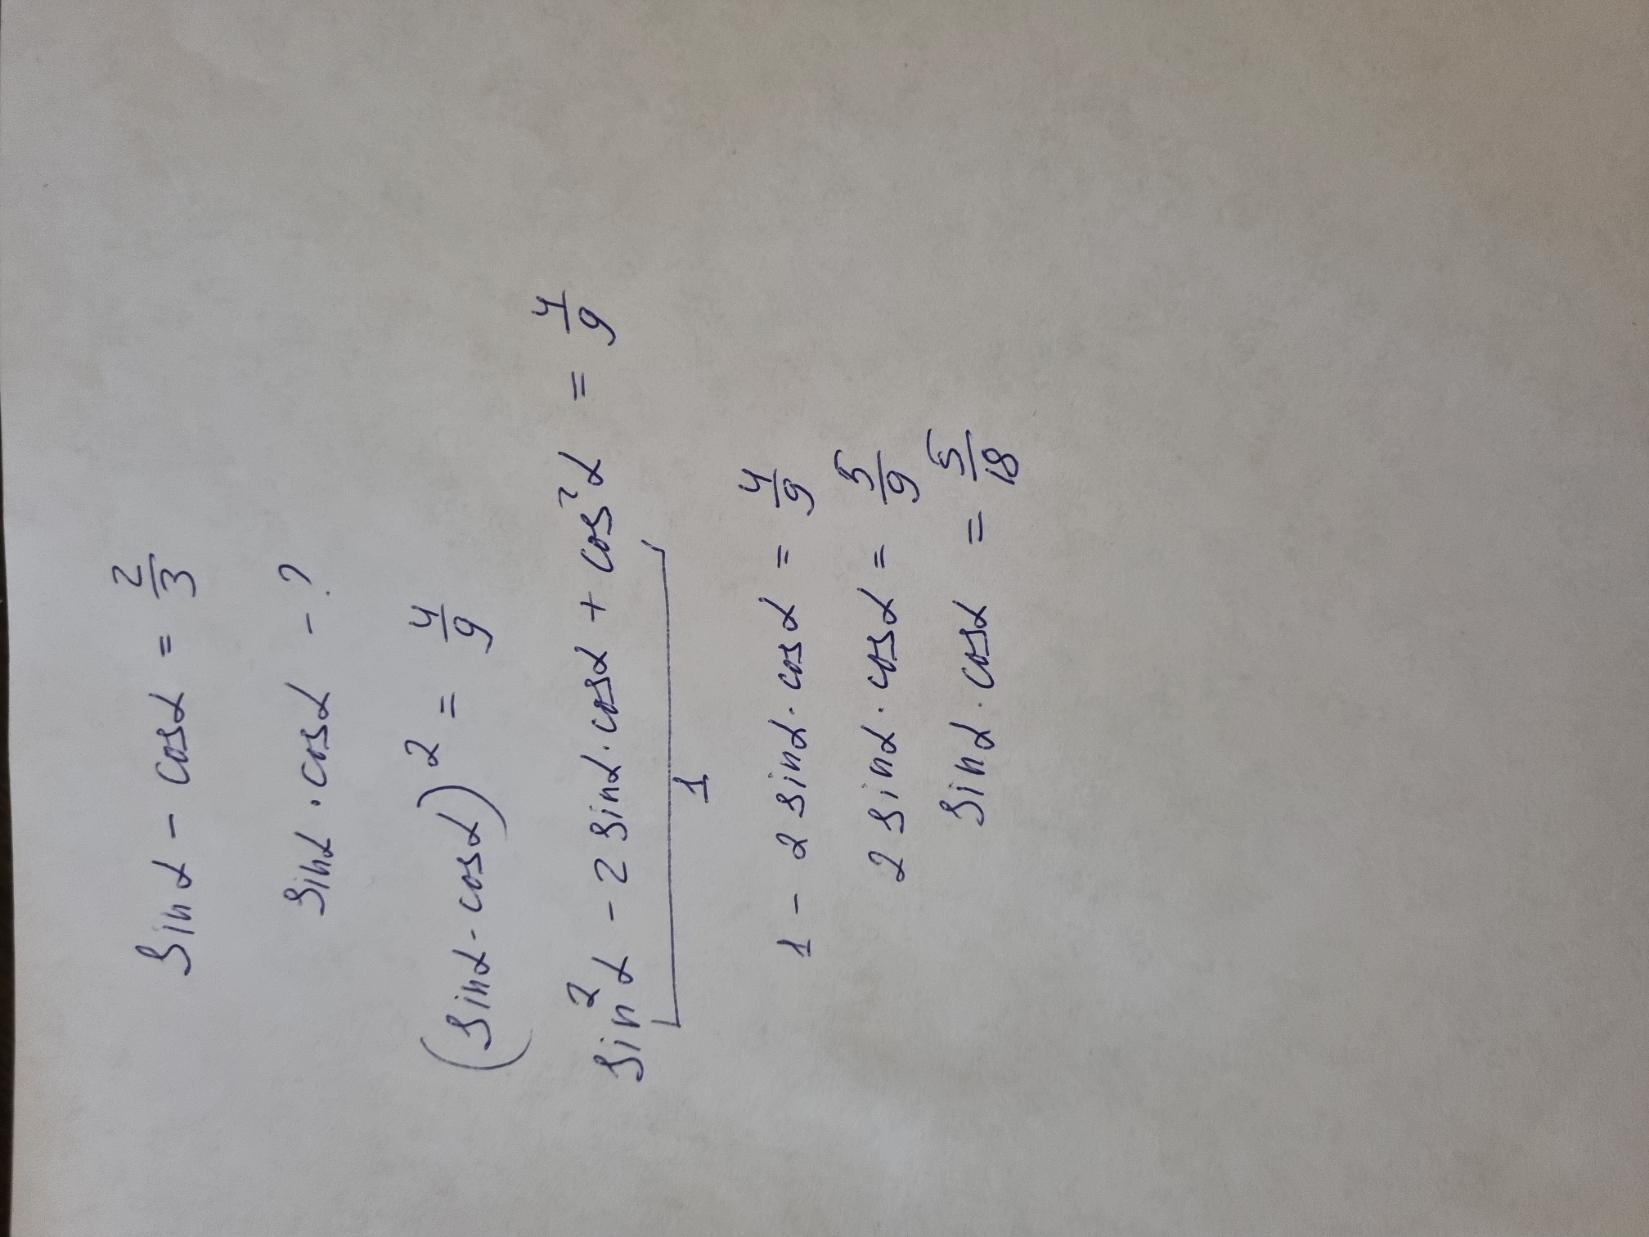 sinα - cosα = 2/3
sinα · cosα - ?
(sinα - cosα)² = 4/9
sin²α - 2 sinα · cosα + cos²α = 4/9
1
1 - 2 sinα · cosα = 4/9
2 sinα · cosα = 5/9
sinα · cosα = 5/18